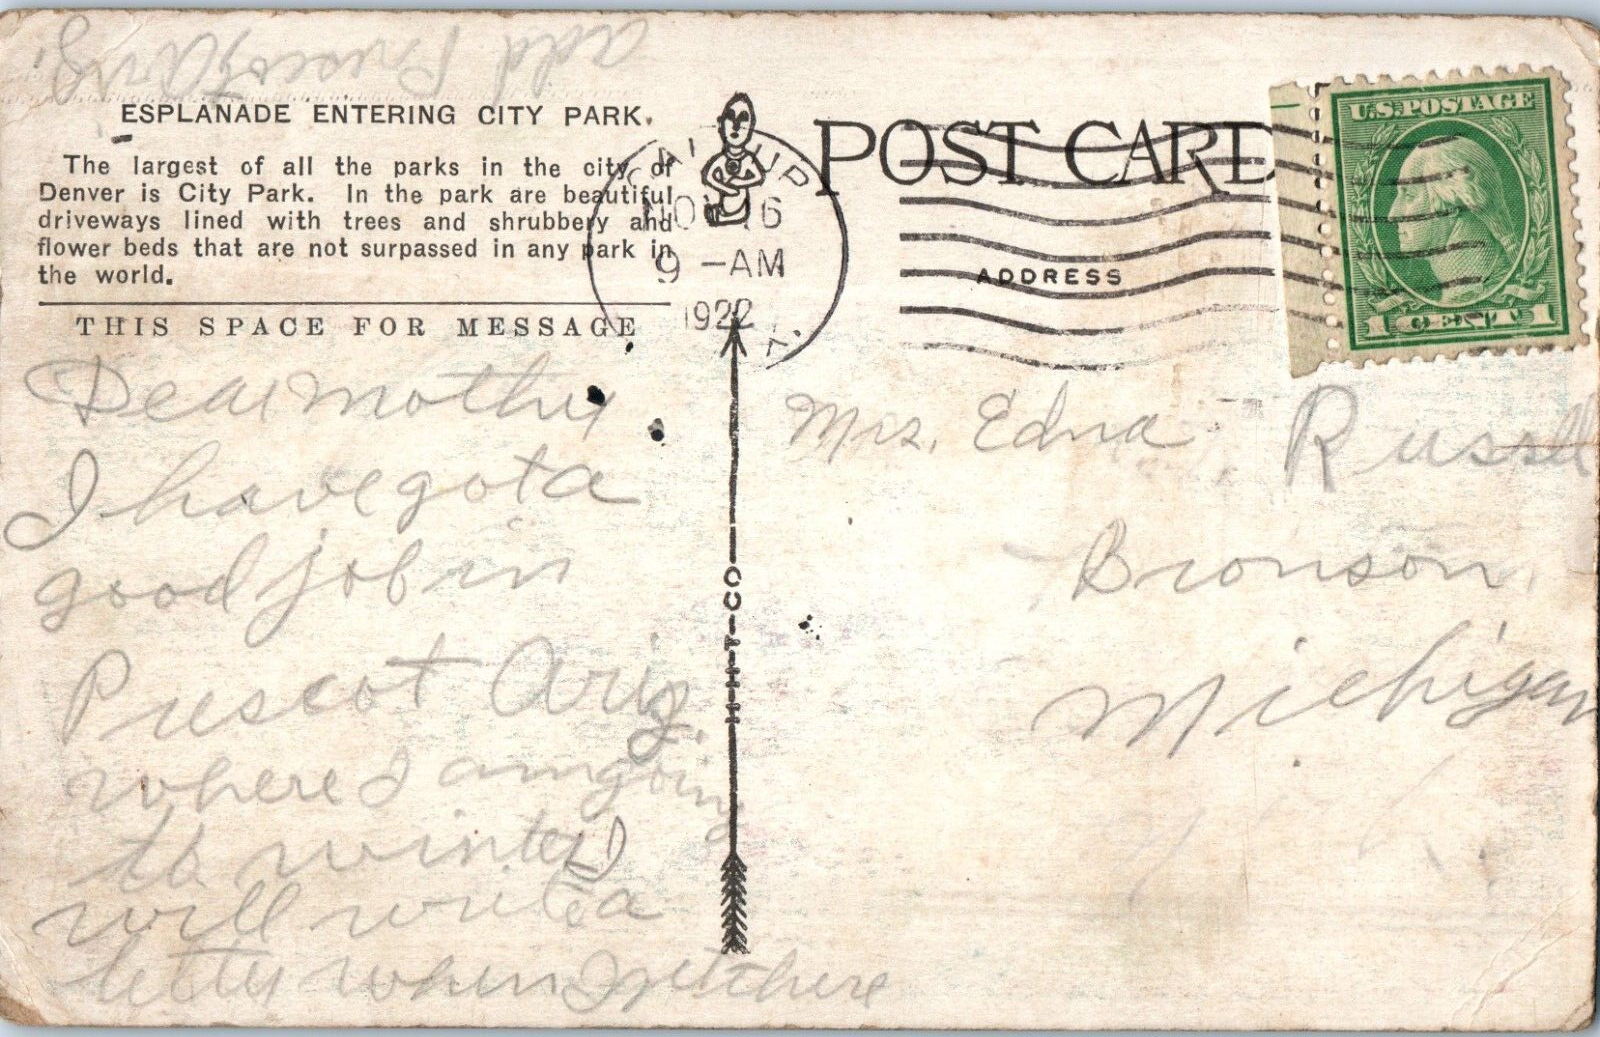 add Prescot Ariz.
ESPLANADE ENTERING CITY PARK.
The largest of all the parks in the city of
Denver is City Park. In the park are beautiful
driveways lined with trees and shrubbery and
flower beds that are not surpassed in any park in
the world.
THIS SPACE FOR MESSAGE
Dear mother
I have got a
good job in
Prescot Ariz.
where I am going
to winter I
will write a
letter when I get there
GALLUP
NOV 16
9 -AM
1922
POST CARD
ADDRESS
U.S. POSTAGE
1 CENT 1
Mrs. Edna Russell
Bronson,
Michigan
HHT-CO